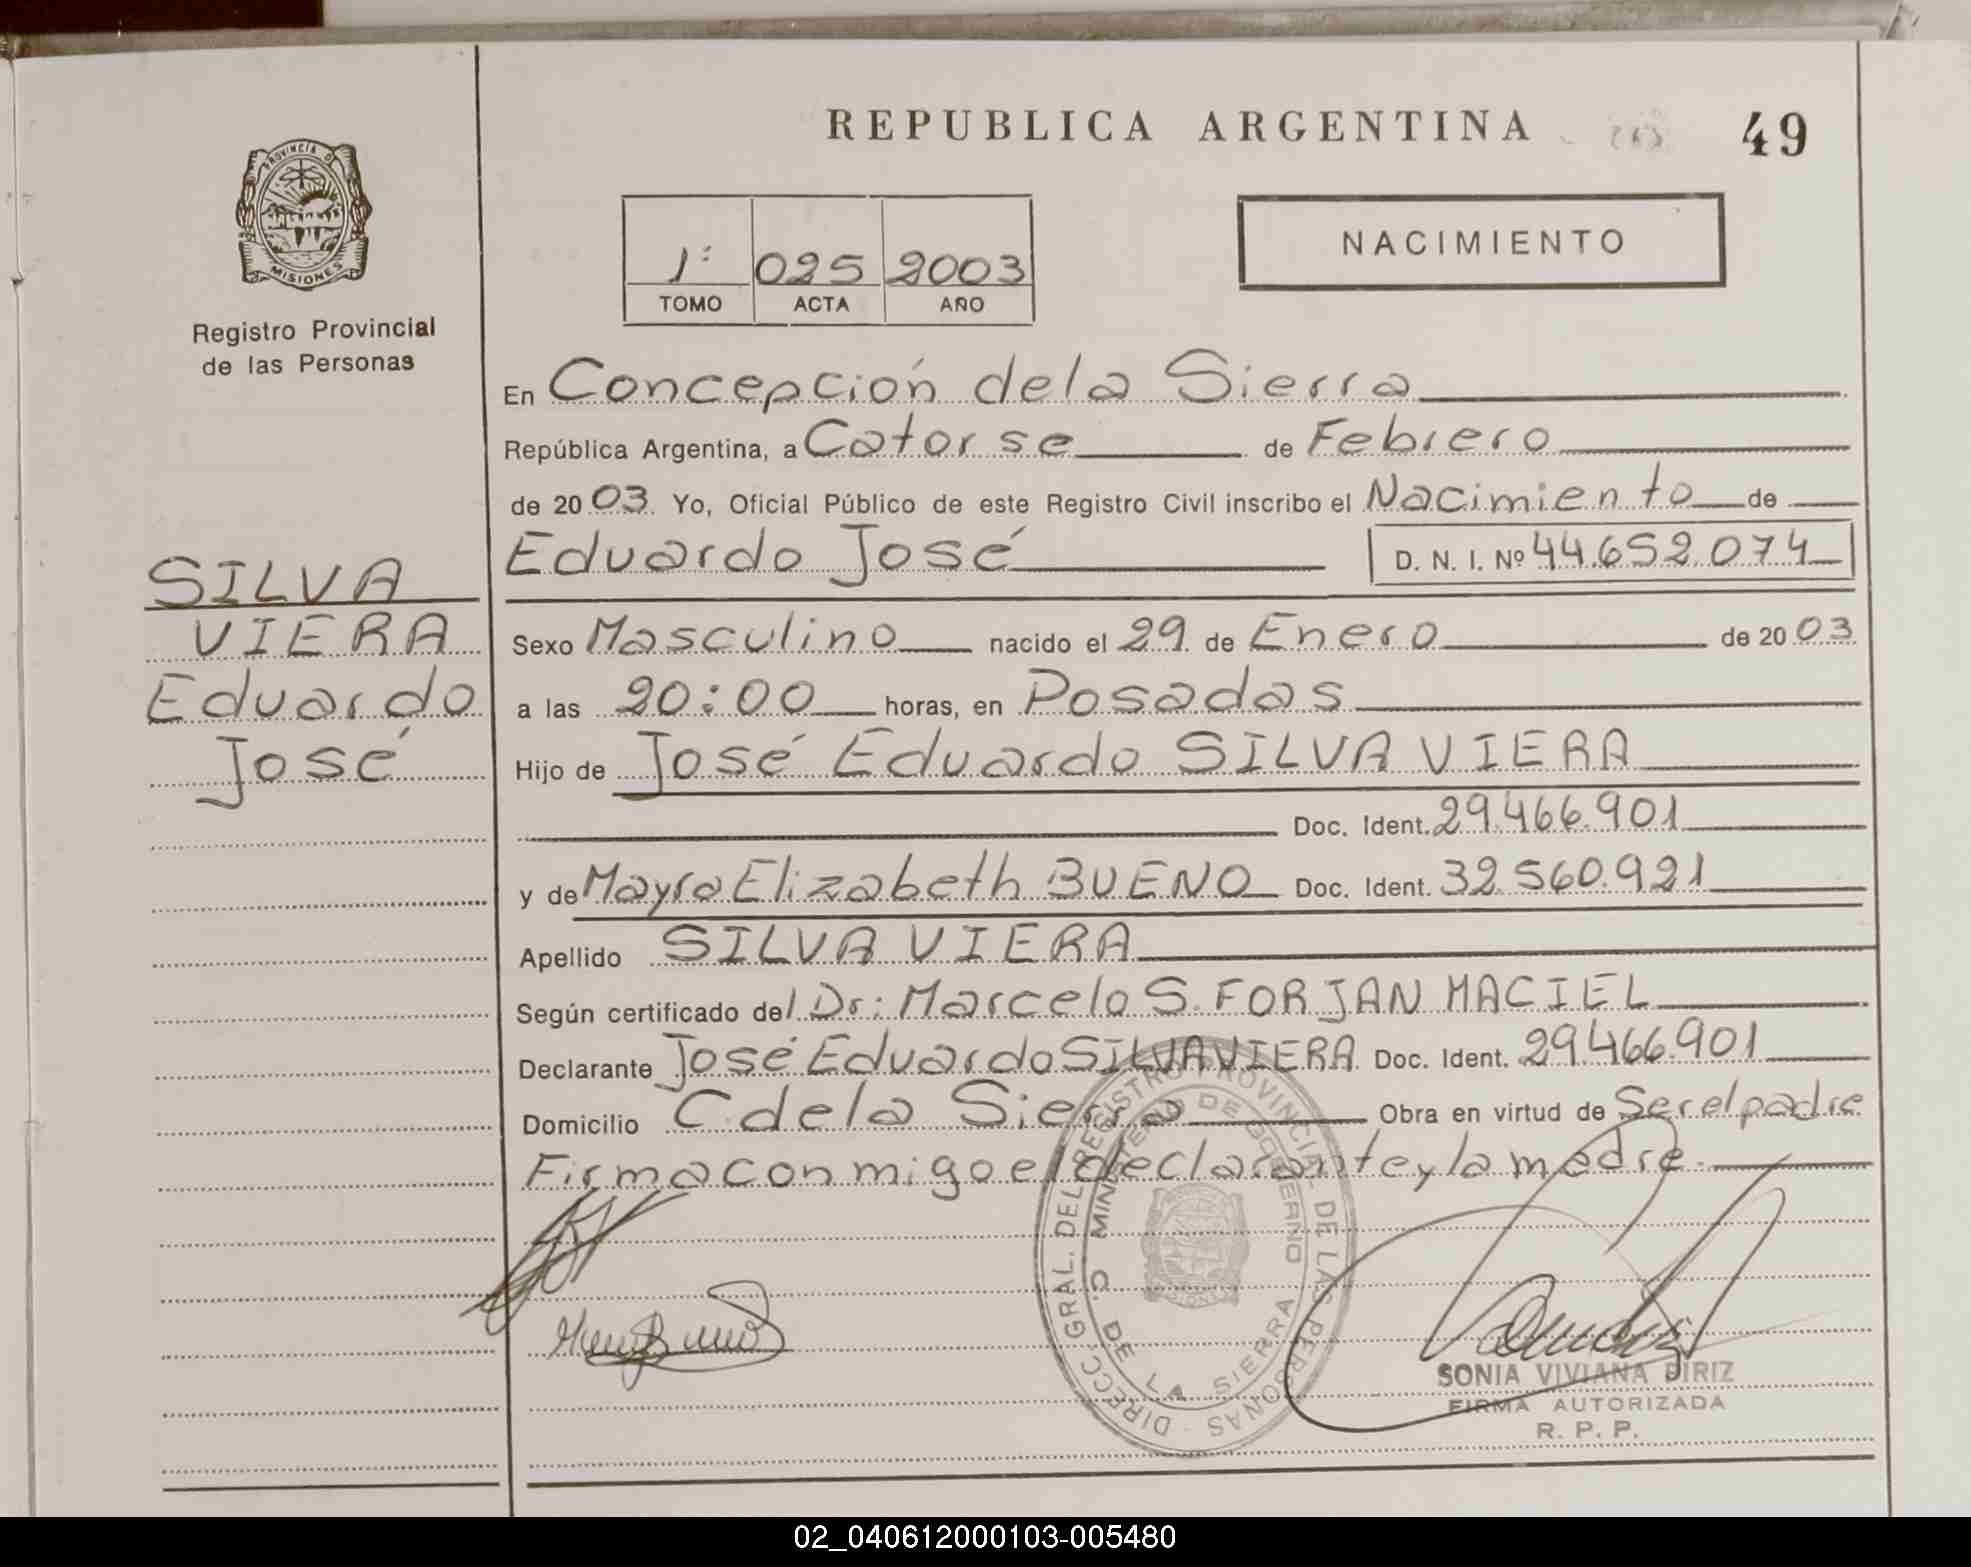 REPUBLICA ARGENTINA
49
PROVINCIA D
MISIONES
Registro Provincial
de las Personas
1º 025 2003
TOMO ACTA AÑO
NACIMIENTO
En Concepción de la Sierra
República Argentina, a Catorse de Febrero
de 2003 Yo, Oficial Público de este Registro Civil inscribo el Nacimiento de
Eduardo José D. N. I. Nº 44.652.074
SILVA
VIERA
Eduardo
José
Sexo Masculino nacido el 29 de Enero de 2003
a las 20:00 horas, en Posadas
Hijo de José Eduardo SILVA VIERA
Doc. Ident. 29.466.901
y de Mayra Elizabeth BUENO Doc. Ident. 32.560.921
Apellido SILVA VIERA
Según certificado del Dr: Marcelo S. FORJAN MACIEL
Declarante José Eduardo SILVA VIERA Doc. Ident. 29.466.901
Domicilio C. de la Sierra Obra en virtud de Ser el padre
Firma conmigo el declarante y la madre.
DIRECC. GRAL. DEL REGISTRO PROVINCIAL DE LAS PERSONAS
MINISTERIO DE GOBIERNO
C. DE LA SIERRA
SONIA VIVIANA PIRIZ
FIRMA AUTORIZADA
R. P. P.
02_040612000103-005480